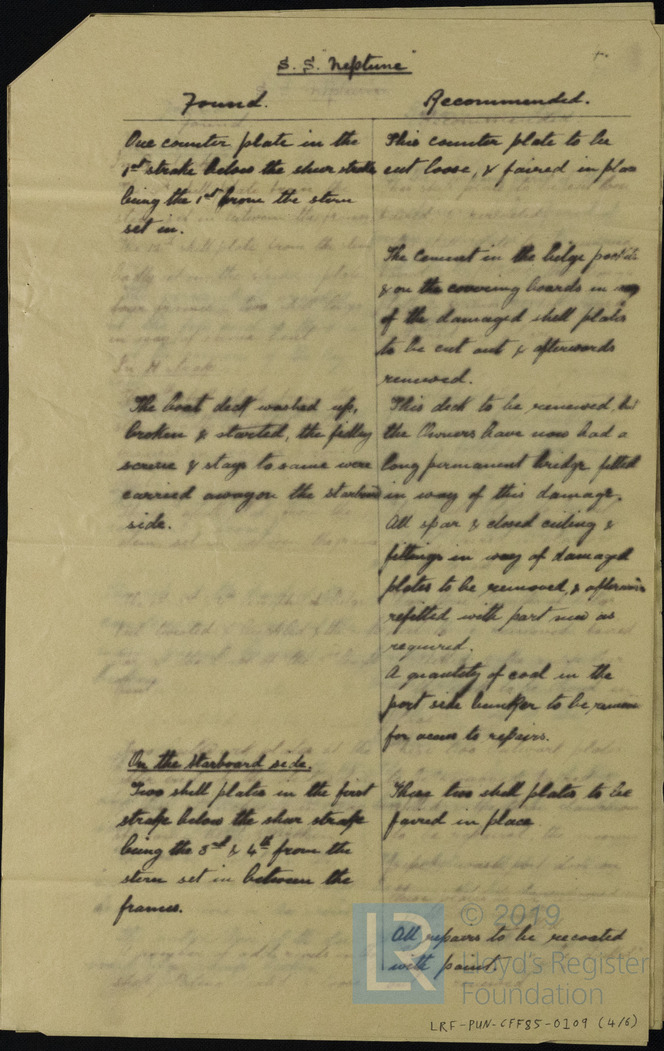 S. S. "Neptune"
Found.
Recommended.
One counter plate in the
1st strake below the shear strake
being the 1st from the stern
set in.
This counter plate to be
cut loose, & faired in place
The cement in the bilge
& on the covering boards in way
of the damaged shell plates
to be cut out & afterwards
renewed.
The boat deck washed up,
broken & started, the fidley
screens & stays to same were
carried away on the starboard
side.
This deck to be renewed, but
the Owners have now had a
long permanent bridge fitted
in way of this damage.
All spar & closed ceiling &
fittings in way of damaged
plates to be removed, & afterwards
refitted with part new as
required.
A quantity of coal in the
port side bunker to be
for access to repairs.
On the starboard side.
Two shell plates in the first
strake below the shear strake
being the 3rd & 4th from the
stern set in between the
frames.
These two shell plates to be
faired in place
All repairs to be recoated
with paint.
© 2019
LR
Lloyd's Register
Foundation
LRF-PUN-CFF85-0109 (4/6)